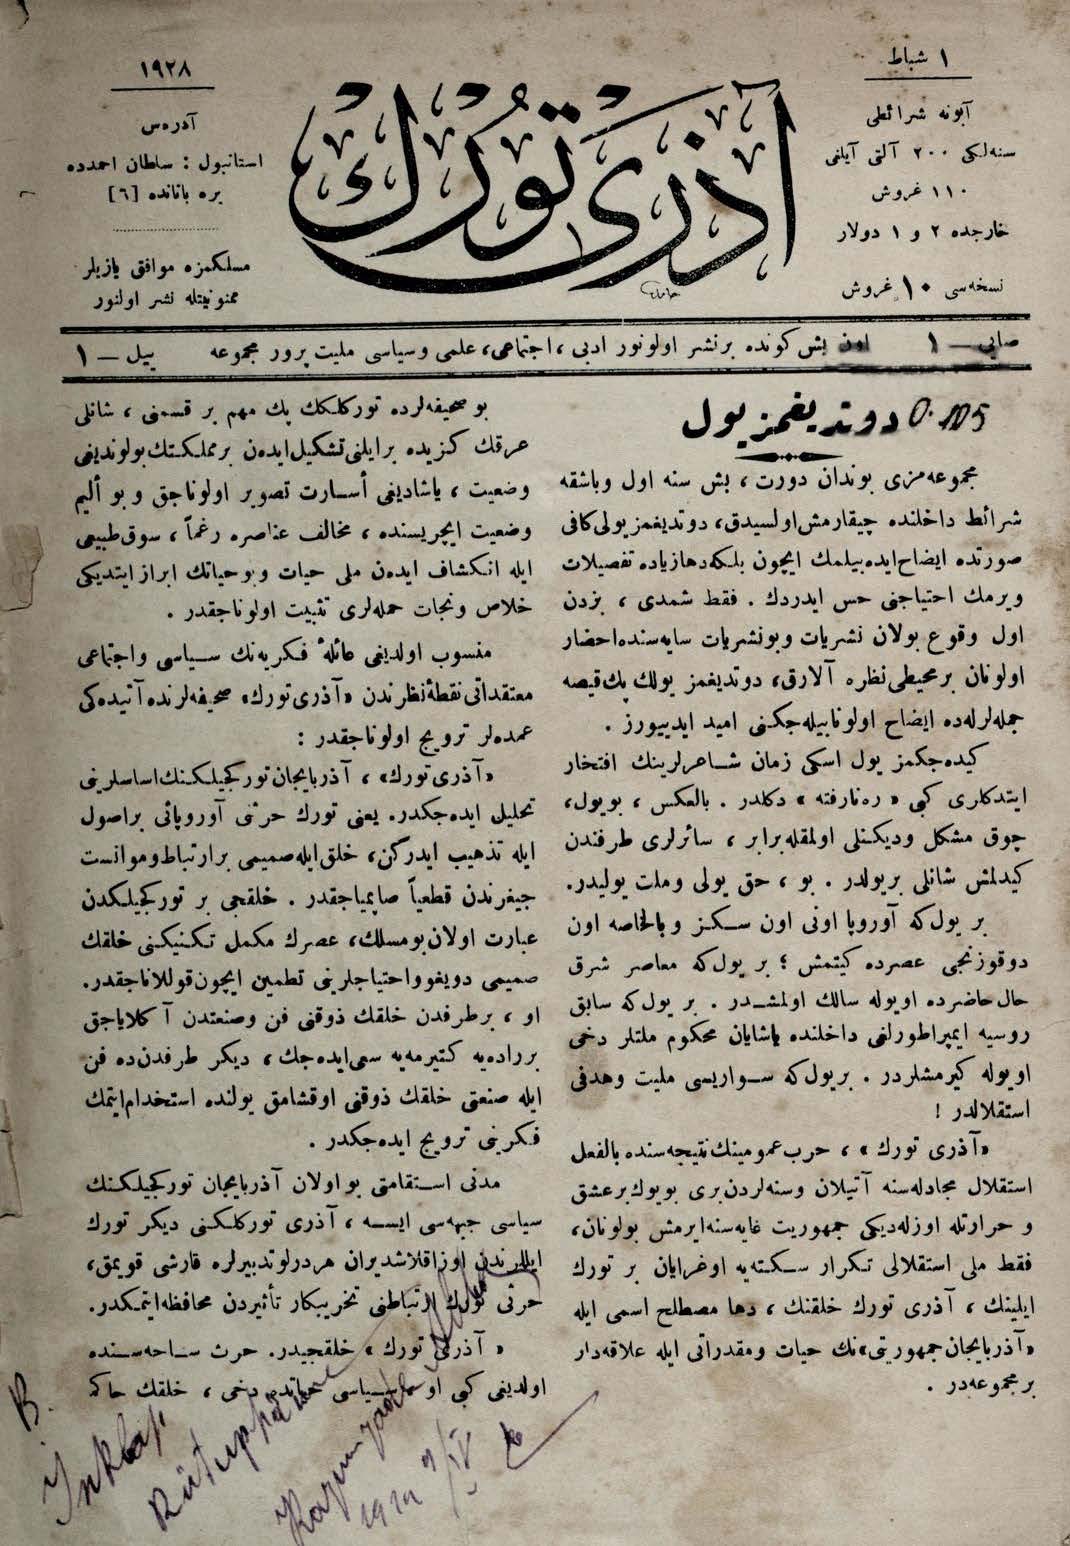 ۱ شباط
آبونه شرائطی
سنه‌لكی ۲۰۰ آلتی آیلغی
۱۱۰ غروش
خارجده ۲ و ۱ دولار
نسخه‌سی ۱۰ غروش
آذری تورك
۱۹۲۸
آدره‌س
استانبول : سلطان احمدده
[٦]
مسلكمزه موافق یازیلر
ممنونیتله نشر اولنور
صایی — ۱ اون بش كونده بر نشر اولونور ادبی ، اجتماعی، علمی و سیاسی ملیت پرور مجموعه ییل — ۱
0.105
دوتدیغمز یول
مجموعه‌مزی بوندان دورت ، بش سنه اول و باشقه
شرائط داخلنده چیقارمش اولسیدق، دوتدیغمز یولی كافی
صورتده ایضاح ایده بیلمك ایچون بلكه دها زیاده تفصیلات
ویرمك احتیاجنی حس ایدردك . فقط شمدی ، بزدن
اول وقوع بولان نشریات و بو نشریات سایه‌سنده احضار
اولونان بر محیطی نظره آلارق، دوتدیغمز یولك پك قیصه
جمله‌لرله‌ده ایضاح اولونابیله‌جكنی امید ایدییورز .
كیده‌جكمز یول اسكی زمان شاعرلرینك افتخار
ایتدكلری كبی « ره نارفته » دكلدر . بالعكس ، بو یول،
چوق مشكل و دیكنلی اولمقله برابر ، سائرلری طرفندن
كیدلمش شانلی بر یولدر . بو ، حق یولی و ملت یولیدر.
بر یول كه آوروپا اونی اون سكز و بالخاصه اون
دوقوزنجی عصرده كیتمش ؛ بر یول كه معاصر شرق
حال حاضرده او یوله سالك اولمشدر . بر یول كه سابق
روسیه ایمپراطورلغی داخلنده یاشایان محكوم ملتلر دخی
او یوله كیرمشلردر . بر یول كه سواریسی ملیت و هدفی
استقلالدر !
«آذری تورك» ، حرب عمومینك نتیجه‌سنده بالفعل
استقلال مجادله‌سنه آتیلان و سنه‌لردن بری بویوك بر عشق
و حرارتله اوزله‌دیكی جمهوریت غایه‌سنه ایرمش بولونان،
فقط ملی استقلالی تكرار سكته‌یه اوغرایان بر تورك
ایلینك ، آذری تورك خلقنك ، دها مصطلح اسمی ایله
«آذربایجان جمهوریتی» نك حیات و مقدراتی ایله علاقه‌دار
بر مجموعه‌در .
بو صحیفه‌لرده توركلكك پك مهم بر قسمنی ، شانلی
عرقك كزیده بر ایلنی تشكیل ایدن بر مملكتك بولوندیغی
وضعیت ، یاشادیغی أسارت تصویر اولوناجق و بو ألیم
وضعیت ایچریسنده ، مخالف عناصره رغماً ، سوق طبیعی
ایله انكشاف ایده‌ن ملی حیات و بو حیاتك ابراز ایتدیكی
خلاص و نجات حمله‌لری تثبیت اولوناجقدر .
منسوب اولدیغی عائلهٔ فكریه‌نك سیاسی و اجتماعی
معتقداتی نقطهٔ نظرندن «آذری تورك» صحیفه‌لرنده آتیده‌كی
عمده‌لر ترویج اولوناجقدر :
«آذری تورك» ، آذربایجان توركجیلكنك اساسلرینی
تحلیل ایده‌جكدر. یعنی تورك حرثنی آوروپائی بر اصول
ایله تذهیب ایدركن، خلق ایله صمیمی بر ارتباط و موانست
جیغرندن قطعیاً صاپمیاجقدر . خلقجی بر توركجیلكدن
عبارت اولان بو مسلك، عصرك مكمل تكنیكنی خلقك
صمیمی دویغو و احتیاجلرینی تطمین ایچون قوللاناجقدر.
او ، بر طرفدن خلقك ذوقنی فن و صنعتدن آكلایاجق
بر راده‌یه كتیرمه‌یه سعی ایده‌جك ، دیكر طرفدن‌ده فن
ایله صنعتی خلقك ذوقنی اوقشامق یولنده استخدام ایتمك
فكرینی ترویج ایده‌جكدر .
مدنی استقامتی بو اولان آذربایجان توركجیلكنك
سیاسی جبهه‌سی ایسه ، آذری توركلكنی دیكر تورك
ایللرندن اوزاقلاشدیران هر درلو تدبیرلره قارشی قویمق،
حرثی تورك ارتباطنی تخریبكار تأثیردن محافظه ایتمكدر.
« آذری تورك » خلقجیدر. حرث ساحه‌سنده
اولدیغی كبی او سیاسی حیاتده دخی ، خلقك حاكم
B.
Inklap